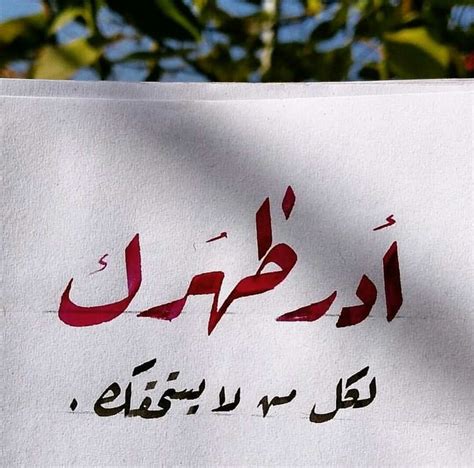 أدر ظهرك
لكل من لا يستحقك .